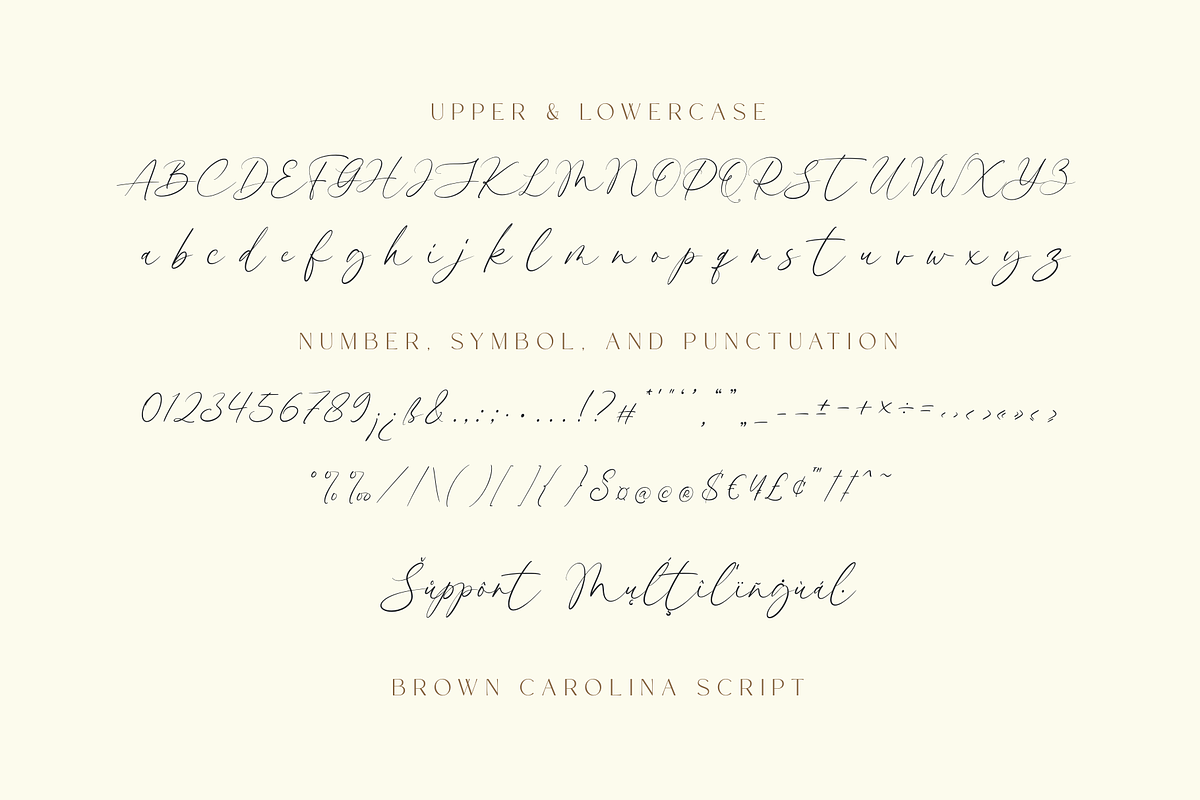 UPPER & LOWERCASE
ABCDEFGHIJKLMNOPQRSTUVWXYZ
a b c d e f g h i j k l m n o p q r s t u v w x y z
NUMBER, SYMBOL, AND PUNCTUATION
0123456789¡¿ß&.,:;·•...!?#*'"‘’‚“”„_–—±−+×÷=‹›<>«»‹›
°%‰/|\()[]{}§¤@©®$€¥£¢™†‡^~
Šůppôrt Mųĺţîľïñġùáŀ
BROWN CAROLINA SCRIPT